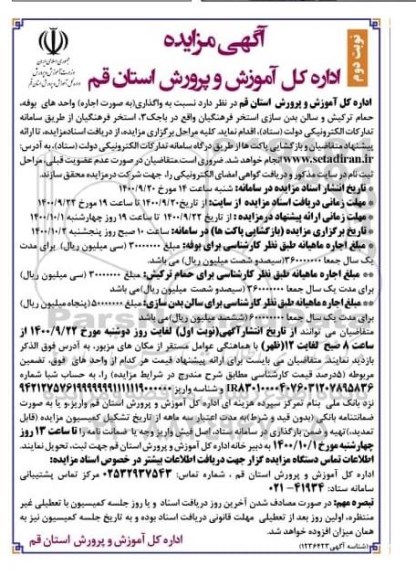 نوبت دوم
آگهی مزایده
اداره کل آموزش و پرورش استان قم
جمهوری اسلامی ایران
وزارت آموزش و پرورش
اداره کل آموزش و پرورش استان قم
اداره کل آموزش و پرورش استان قم در نظر دارد نسبت به واگذاری(به صورت اجاره) واحد های بوفه،
حمام ترکیش و سالن بدن سازی استخر فرهنگیان واقع در باجک۳، استخر فرهنگیان از طریق سامانه
تدارکات الکترونیکی دولت (ستاد)، اقدام نماید. کلیه مراحل برگزاری مزایده، از دریافت اسنادمزایده، تا ارائه
پیشنهاد متقاضیان و بازگشایی پاکت ها از طریق درگاه سامانه تدارکات الکترونیکی دولت (ستاد)، به آدرس:
www.setadiran.ir انجام خواهد شد. ضروری است، متقاضیان در صورت عدم عضویت قبلی، مراحل
ثبت نام در سایت مذکور و دریافت گواهی امضای الکترونیکی را، جهت شرکت درمزایده محقق سازند.
* تاریخ انتشار اسناد مزایده در سامانه: شنبه ساعت ۱۴ مورخ ۱۴۰۰/۹/۲۰
* مهلت زمانی دریافت اسناد مزایده از سایت: از تاریخ ۱۴۰۰/۹/۲۰ تا ساعت ۱۹ مورخ ۱۴۰۰/۹/۲۲
* مهلت زمانی ارائه پیشنهاد درمزایده : از تاریخ ۱۴۰۰/۹/۲۲ تا ساعت ۱۹ روز چهارشنبه ۱۴۰۰/۱۰/۱
* تاریخ برگزاری مزایده (بازگشایی پاکت ها) در سامانه: ساعت ۱۰ صبح روز پنجشنبه ۱۴۰۰/۱۰/۲
** مبلغ اجاره ماهیانه طبق نظر کارشناسی برای بوفه: مبلغ ۳۰۰۰۰۰۰۰ (سی میلیون ریال) برای مدت
یک سال جمعا ۳۶۰۰۰۰۰۰۰ (سیصدو شصت میلیون ریال) می باشد.
** مبلغ اجاره ماهیانه طبق نظر کارشناسی برای حمام ترکیش: مبلغ ۳۰۰۰۰۰۰۰ (سی میلیون ریال)
برای مدت یک سال جمعا ۳۶۰۰۰۰۰۰۰ (سیصدو شصت میلیون ریال) می باشد.
** مبلغ اجاره ماهیانه طبق نظر کارشناسی برای سالن بدن سازی: مبلغ ۵۰۰۰۰۰۰۰ (پنجاه میلیون ریال)
برای مدت یک سال جمعا ۶۰۰۰۰۰۰۰۰ (ششصد میلیون ریال) می باشد.
متقاضیان می توانند از تاریخ انتشار آگهی(نوبت اول) لغایت روز دوشنبه مورخ ۱۴۰۰/۹/۲۲ از
ساعت ۸ صبح لغایت ۱۲(ظهر) با هماهنگی عوامل مستقر از مکان های مزبور، به آدرس فوق الذکر
بازدید نمایند. متقاضیان می بایست برای ارائه پیشنهاد قیمت هر کدام از واحد های فوق، تضمین
مربوطه (۵درصد قیمت کارشناسی مطابق شرح مندرج در شرایط مزایده) را، به حساب شبا شماره
نزد بانک ملی بنام تمرکز سپرده هزینه ای اداره کل آموزش و پرورش استان قم واریز و یا به صورت
ضمانتنامه بانکی (بدون قید و شرط)به مدت اعتبار سه ماهه از تاریخ تشکیل کمیسیون مزایده (قابل
تمدید)،تهیه و ضمن بارگذاری در سامانه ستاد، اصل فیش واریز وجه یا ضمانت نامه را تا ساعت ۱۳ روز
چهارشنبه مورخ ۱۴۰۰/۱۰/۱ به دبیر خانه اداره کل آموزش و پرورش استان قم جهت ثبت، تحویل نمایند.
اطلاعات تماس دستگاه مزایده گزار جهت دریافت اطلاعات بیشتر در خصوص اسناد مزایده:
اداره کل آموزش و پرورش استان قم ، شماره تماس: ۰۲۵۳۲۹۳۷۵۴۳ مرکز تماس پشتیبانی
سامانه ستاد: ۴۱۹۳۴-۰۲۱
تبصره مهم: در صورت مصادف شدن آخرین روز دریافت اسناد و یا روز جلسه کمیسیون با تعطیلی غیر
منتظره، اولین روز بعد از تعطیلی مهلت قانونی دریافت اسناد بوده و به تاریخ جلسه کمیسیون نیز به
همان میزان افزوده خواهد شد.
اداره کل آموزش و پرورش استان قم
(شناسه آگهی ۱۲۳۶۴۲۳)